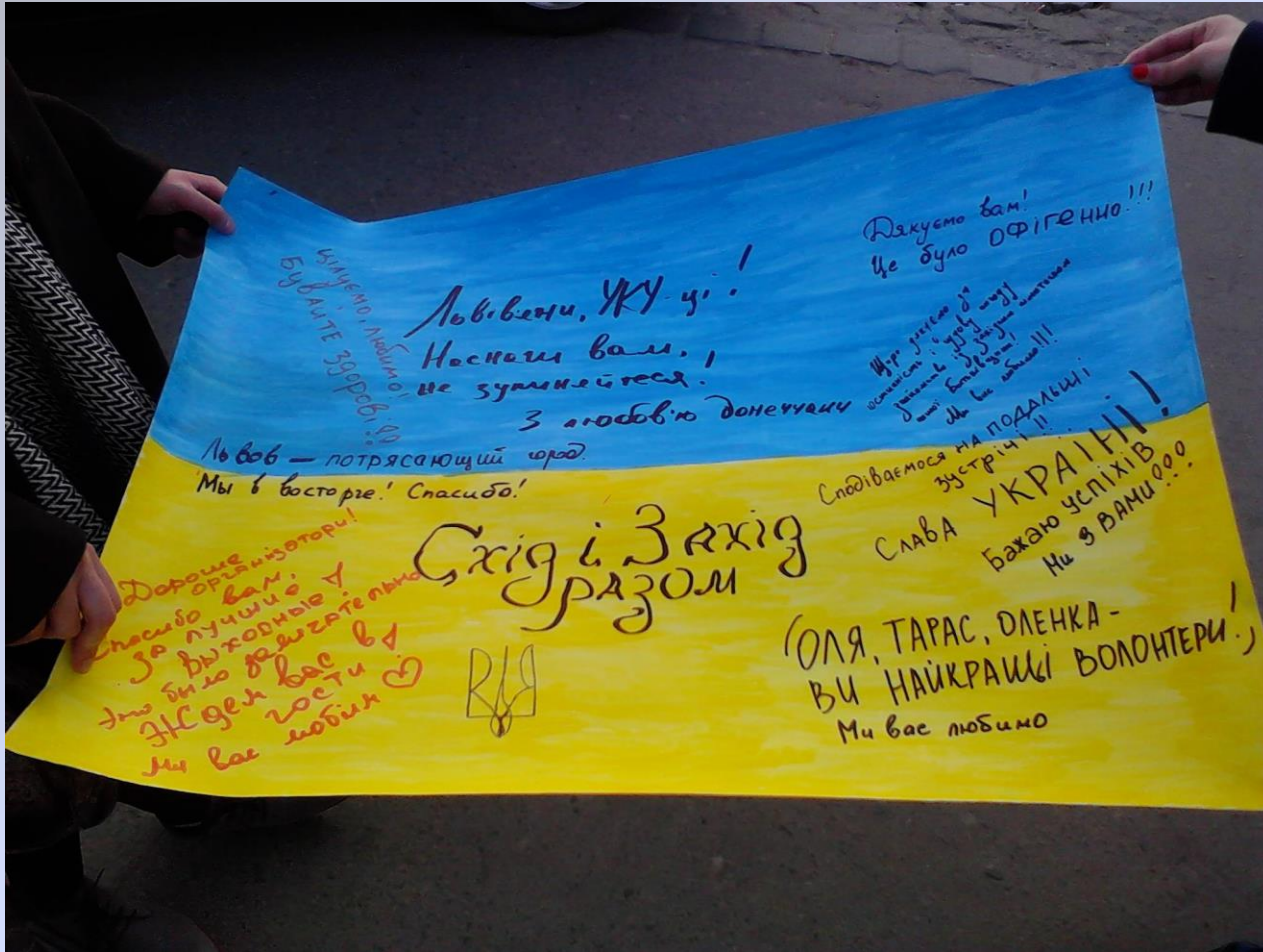 Цілуємо, любимо!
БУВАЙТЕ ЗДОРОВІ!!
Львівяни, УКУ-ці!
Наснаги вам,
не зупиняйтеся!
З любов'ю донеччани
Дякуємо вам!
Це було ОФІГЕННО!!!
Щиро дякуємо за
гостинність і чудову нагоду
нашої Батьківщини!
Ми вас любимо!!!
Львов — потрясающий город.
Мы в восторге! Спасибо!
Сподіваємося НА ПОДАЛЬШІ
ЗУСТРІЧІ!!
СЛАВА УКРАЇНІ!
Бажаю УСПІХІВ
Ми З ВАМИ!!!
Східі Захід
разом
Дороше
організатори!
Спасибо вам,
за лучшие
выходные!
Это было замечательно
Ждем вас в
гости
Ми вас любим
(ОЛЯ, ТАРАС, ОЛЕНКА -
ВИ НАЙКРАЩІ ВОЛОНТЕРИ!)
Ми вас любимо